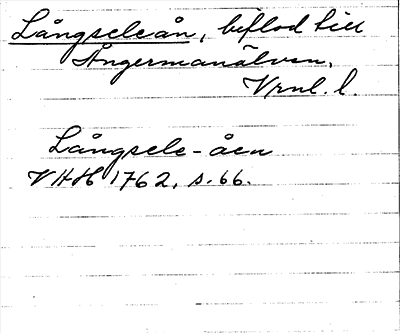 Långseleån, biflod till
Ångermanälven,
Vrnl. l.
Långsele-åen
VHH 1762, s. 66.